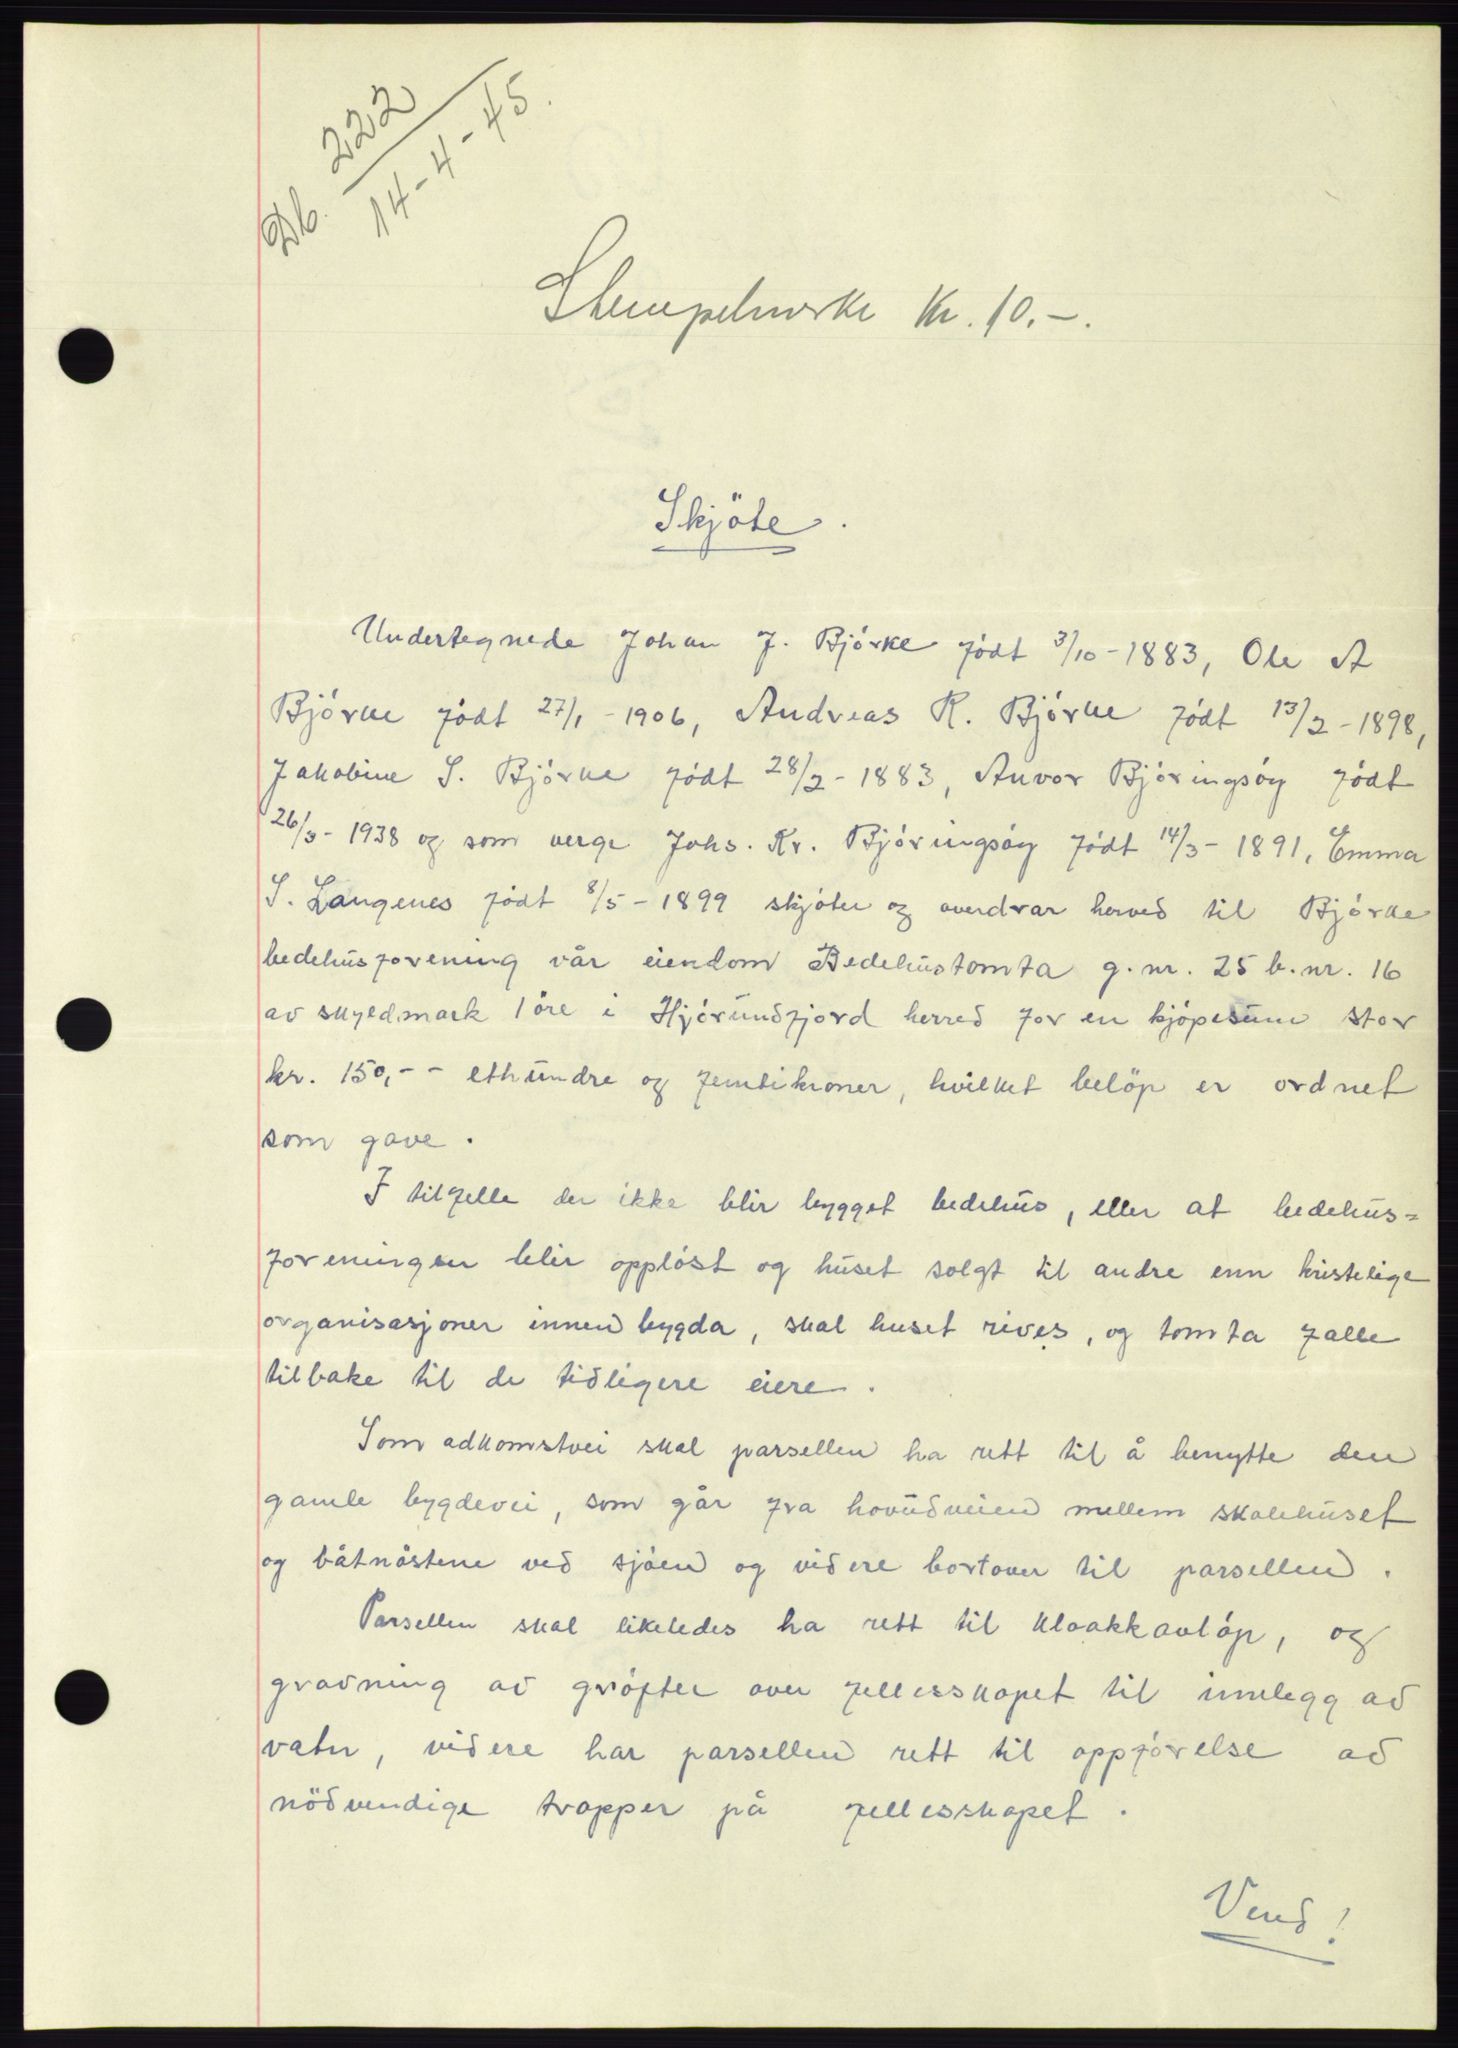 Db. 222
14-4-45.
Stempelmerke kr. 10.-.
Skjöte.
Undertegnede Johan J. Björke født 3/10-1883, Ole A
Björke født 27/1-1906, Andreas R. Björke født 13/2-1898,
Jakobine S. Björke født 28/2-1883, Anvor Björingsöy født
26/3-1938 og som verge Johs. Kr. Björingsöy født 14/3-1891, Emma
S. Langenes født 8/5-1899 skjöter og overdrar herved til Björke
bedehusforening vår eiendom Bedehustomta g.nr. 25 b.nr. 16
av skyldmark 1 öre i Hjörundfjord herred for en kjöpesum stor
kr. 150,-- etthundre og femtikroner, hvilket belöp er ordnet
som gave.
I tilfelle der ikke blir bygget bedehus, eller at bedehus=
foreningen blir opplöst og huset solgt til andre enn kristelige
organisasjoner innen bygda, skal huset rives, og tomta falle
tilbake til de tidligere eiere.
Som adkomstvei skal parsellen ha rett til å benytte den
gamle bygdevei, som går fra hovudveien mellem skolehuset
og båtnöstene ved sjöen og videre bortover til parsellen.
Parsellen skal likeledes ha rett til kloakkavlöp, og
gravning av gröfter over fellesskapet til innlegg av
vatn, videre har parsellen rett til oppförelse av
nödvendige trapper på fellesskapet.
Vend!